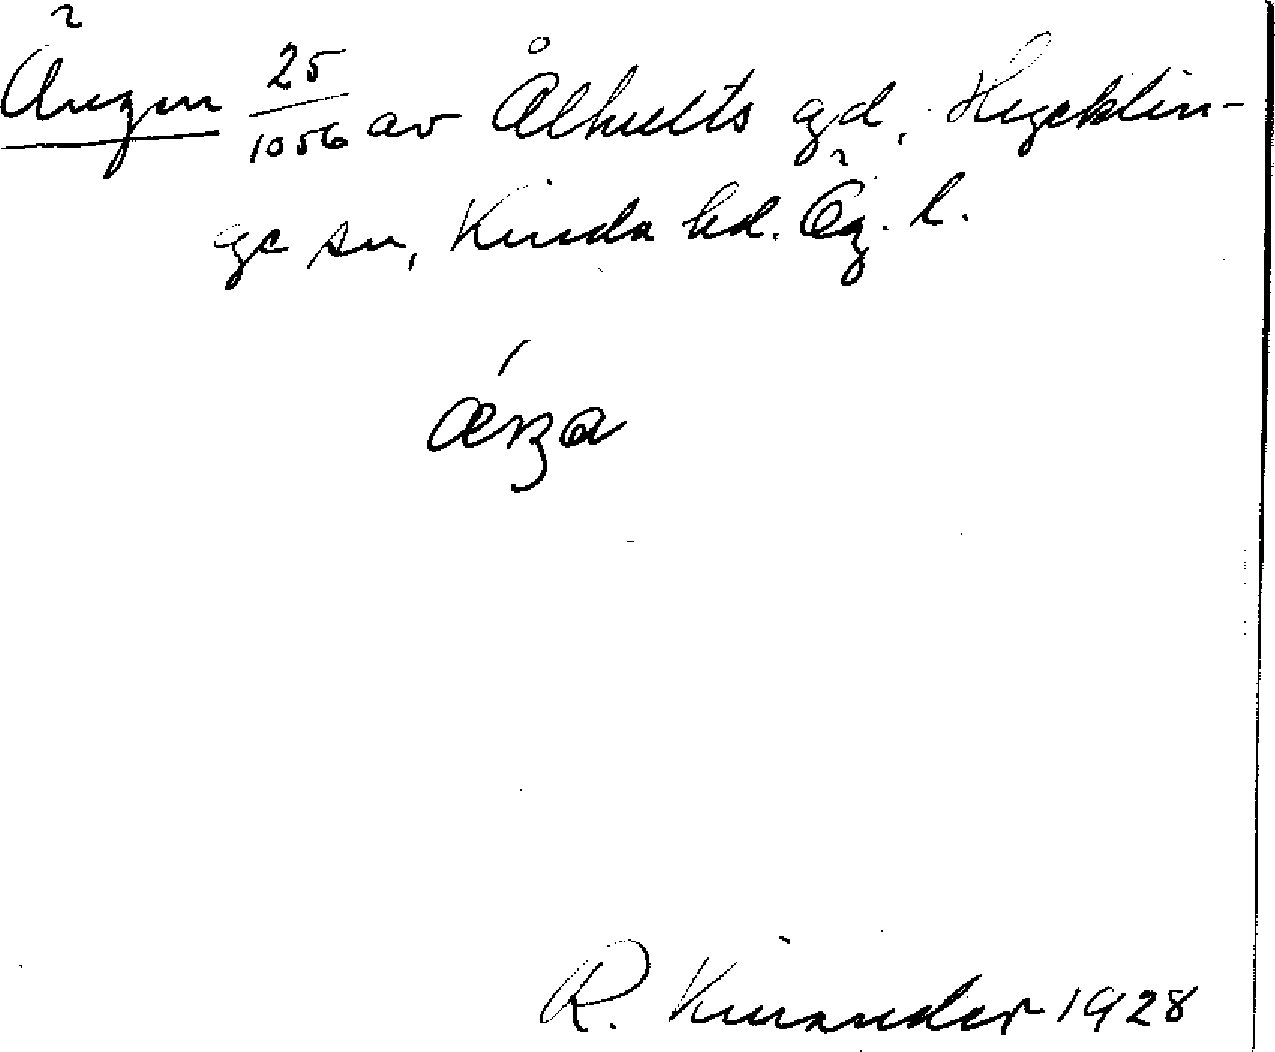 Ängen 25/1056 av Ålhults gd, Hycklin-
ge sn, Kinda hd. Ög. l.
R. Kinander 1928